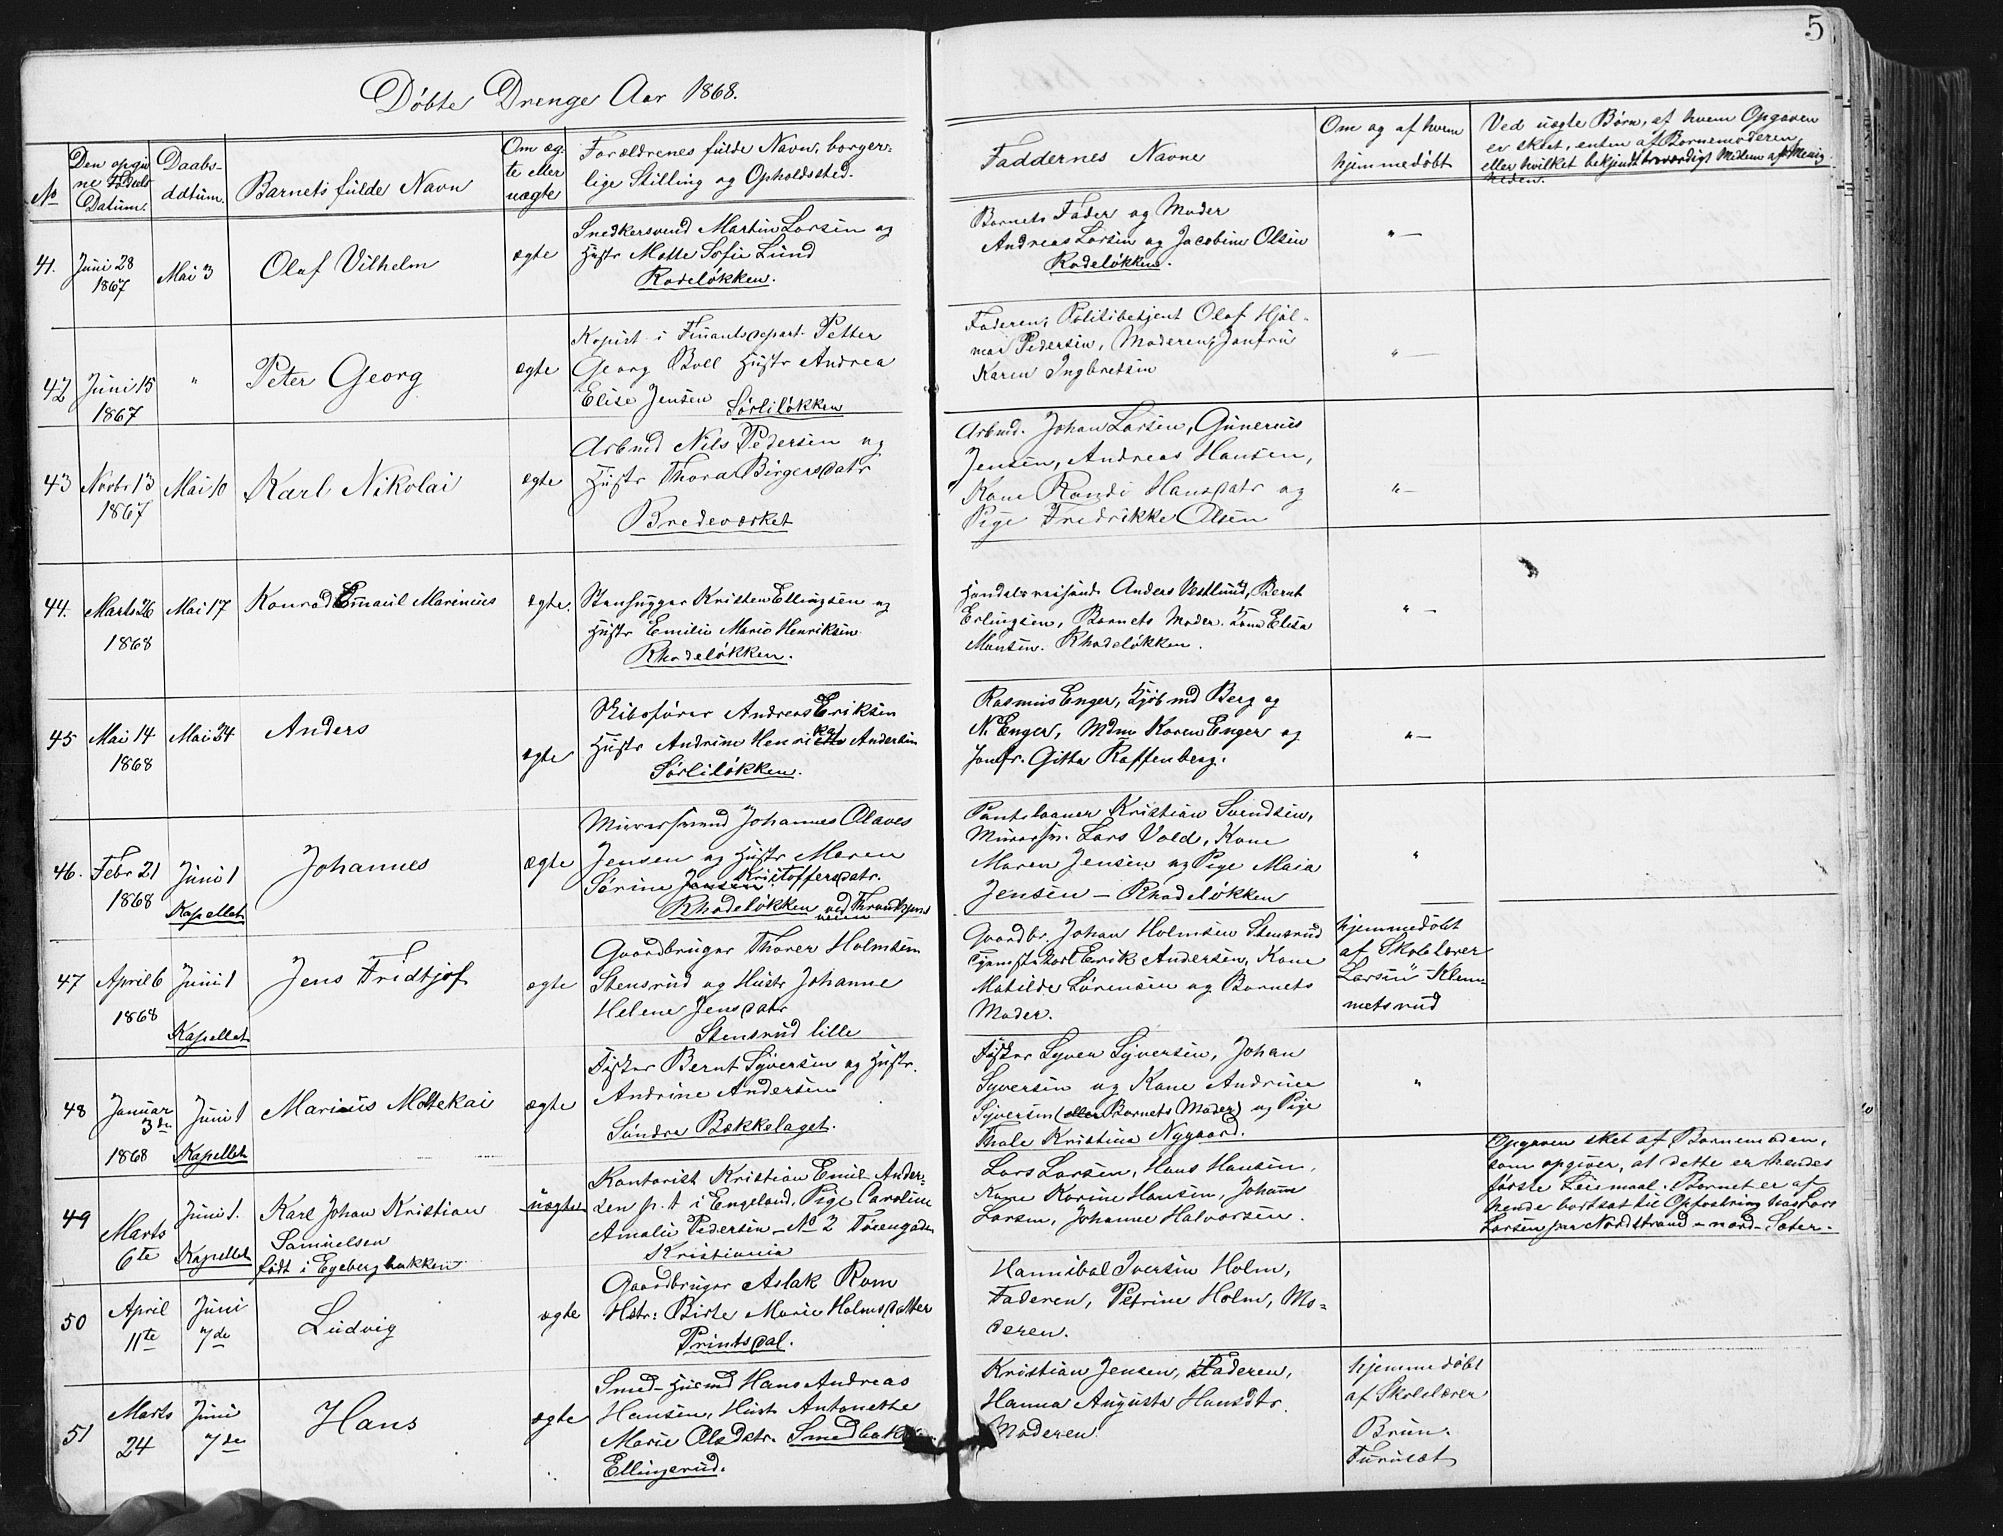 5
Døbte Drenge Aar 1868.
No
Den opgivne Fødsels Datum.
Daabs-datum.
Barnets fulde Navn
Om ægte eller uægte
Forældrenes fulde Navn, borgerlige Stilling og Opholdssted.
Faddernes Navne
Om og af hvem hjemmedøbt
Ved uægte Børn, af hvem Opgaven
er skeet, enten af Barnemoderen
eller hvilket bekjendt troværdigt Medlem af Menig-
heden.
41.
Juni 28
1867
Mai 3
Olaf Vilhelm
ægte
Snedkersvend Martin Larsen og
Hustr Matte Sofie Lund
Rodeløkken.
Barnets Fader og Moder
Andreas Larsen og Jacobine Olsen
Rodeløkken.
" —
42
Juni 15
1867
"
Peter Georg
ægte
Kopist i Finantsdepart. Petter
Georg Boll Hustr Andrea
Elise Jensen Sørliløkken
Faderen, Politibetjent Olaf Hjal-
mar Pedersen, Moderen, Jomfru
Karen Ingbretsen
" —
43
Novbr 13
1867
Mai 10
Karl Nikolai
ægte
Arbmd Nils Pedersen og
Hustr Thora Birgersdatr
Bredeværket
Arbmd. Johan Larsen, Gunerius
Jensen, Andreas Hansen,
Kone Randi Hansdatr og
Pige Fredrikke Olsen
" —
44.
Marts 26
1868
Mai 17
Konrad Emanil Marinius
ægte.
Stenhugger Kristen Ellingsen og
Hustr Emilie Marie Henriksen
Rhodeløkken.
Handelsreisende Anders Vestlund, Bernt
Erlingsen, Barnets Moder. Kone Elisa
Monsen. Rhodeløkken.
" —
45
Mai 14
1868
Mai 24
Anders
ægte
Skibsfører Andreas Eriksen
Hustr Andrine Henrikka Andersen
Sørliløkken.
Rasmus Enger, Kjøbmd Berg og
N. Enger, Mdm Karen Enger og
Jomfr. Gitta Raffenberg.
" —
46.
Febr 21
1868
Juni 1
Kapellet
Johannes
ægte
Murersvend Johannes Olaves
Jensen og Hustr Maren
Sørine Jensen Kristoffersdatr.
Rhodeløkken ved Throndhjems
veien
Pantelaaner Kristian Svendsen,
Murersv. Lars Vold, Kone
Maren Jensen og Pige Maia
Jensen — Rhodeløkken
"
47
April 6
1868
Juni 1
Kapellet
Jens Fridtjof
ægte
Gaardbruger Thorer Holmsen
Stensrud og Hustr Johanne
Helene Jensdatr
Stensrud lille
Gaardbr. Johan Holmsen Stensrud
Tjenestekarl Erik Andersen, Kone
Matilde Sørensen og Barnets
Moder.
hjemmedøbt
af Skolelærer
Larsen Klem-
metsrud
48
Januar
3de
1868
Juni 1
Kapellet
Marinius Mattekai
ægte
Fisker Bernt Syversen og Hustr.
Andrine Andersen
Søndre Bækkelaget.
Fisker Syver Syversen, Johan
Syversen og Kone Andrine
Syversen (eller Barnets Moder) og Pige
Thale Kristina Nygaard.
"
49
Marts
6te
Juni 1.
Kapellet
Karl Johan Kristian
Samuelsen
født i Egebergbakken
uægte
Kontorist Kristian Emil Ander-
sen p. t. i Engeland, Pige Caroline
Amalie Pedersen — No 2 Tørengaden
Kristiania
Lars Larsen, Hans Hansen,
Kone Karine Hansen, Johan
Larsen, Johanne Halvorsen.
Opgaven skeet af Barnemoderen,
som opgiver, at dette er hendes
første Leiemaal. Barnet er af
hende bortsat til Opfostring hos Lars
Larsen paa Nordstrand — nord — Sæter —
50
April
11te
Juni
7de
Ludvig
ægte
Gaardbruger Aslak Rom
Hstr: Birte Marie Holmsdatter
Printsdal.
Hannibal Iversen Holm,
Faderen, Petrine Holm, Mo-
deren.
51
Marts
24
Juni
7de
Hans
ægte
Smed — Husmd Hans Andreas
Hansen, Hust. Antonette
Marie Olsdatr. Smedbak
Ellingsrud.
Kristian Jensen, Faderen,
Hanna Augusta Hansdtr.
Moderen
hjemmedøbt
af Skolelærer
Brun.
Furuset